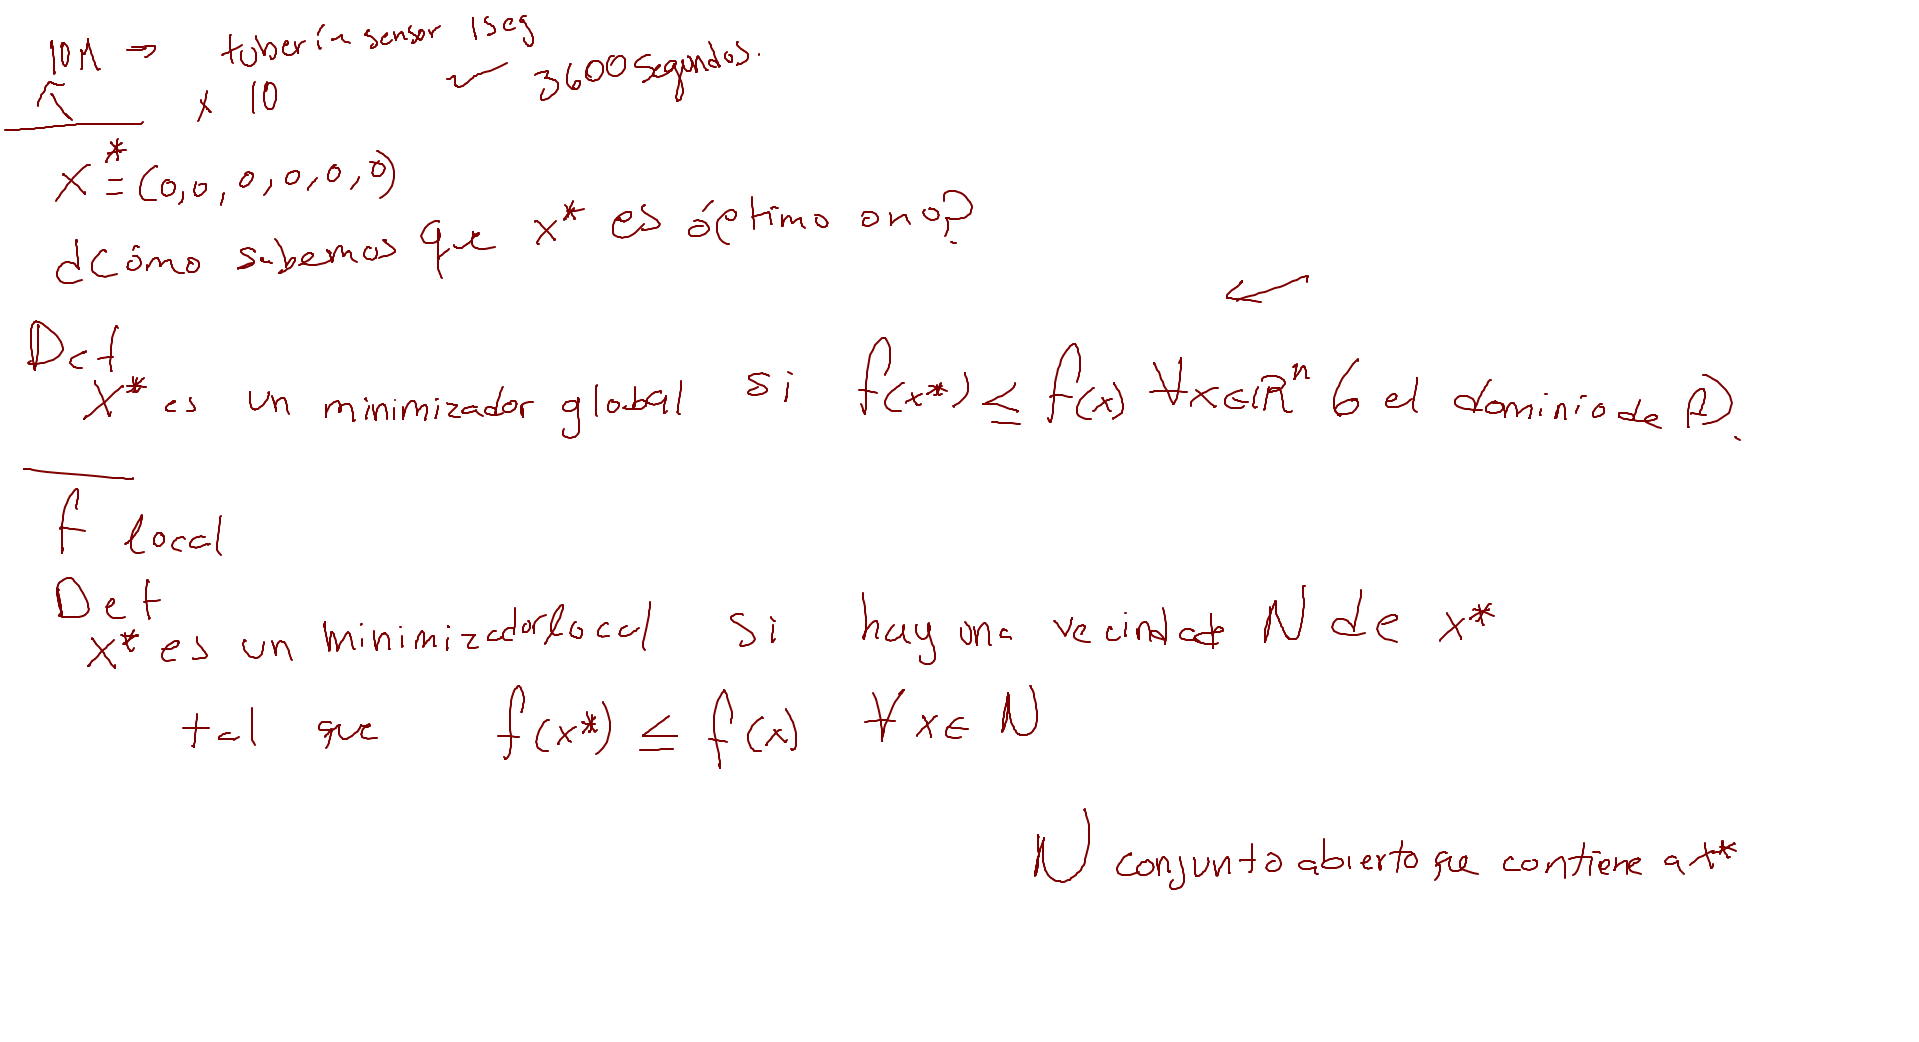 10M ⇒ tubería sensor 1seg
x 10 3600 segundos.
x* = (0,0,0,0,0,0)
¿Cómo sabemos que x* es óptimo o no?
Def
x* es un minimizador global si f(x*) ≤ f(x) ∀x∈ℝⁿ ó el dominio de f).
f local
Def
x* es un minimizador local si hay una vecindad N de x*
tal que f(x*) ≤ f(x) ∀ x∈ N
N conjunto abierto que contiene a x*